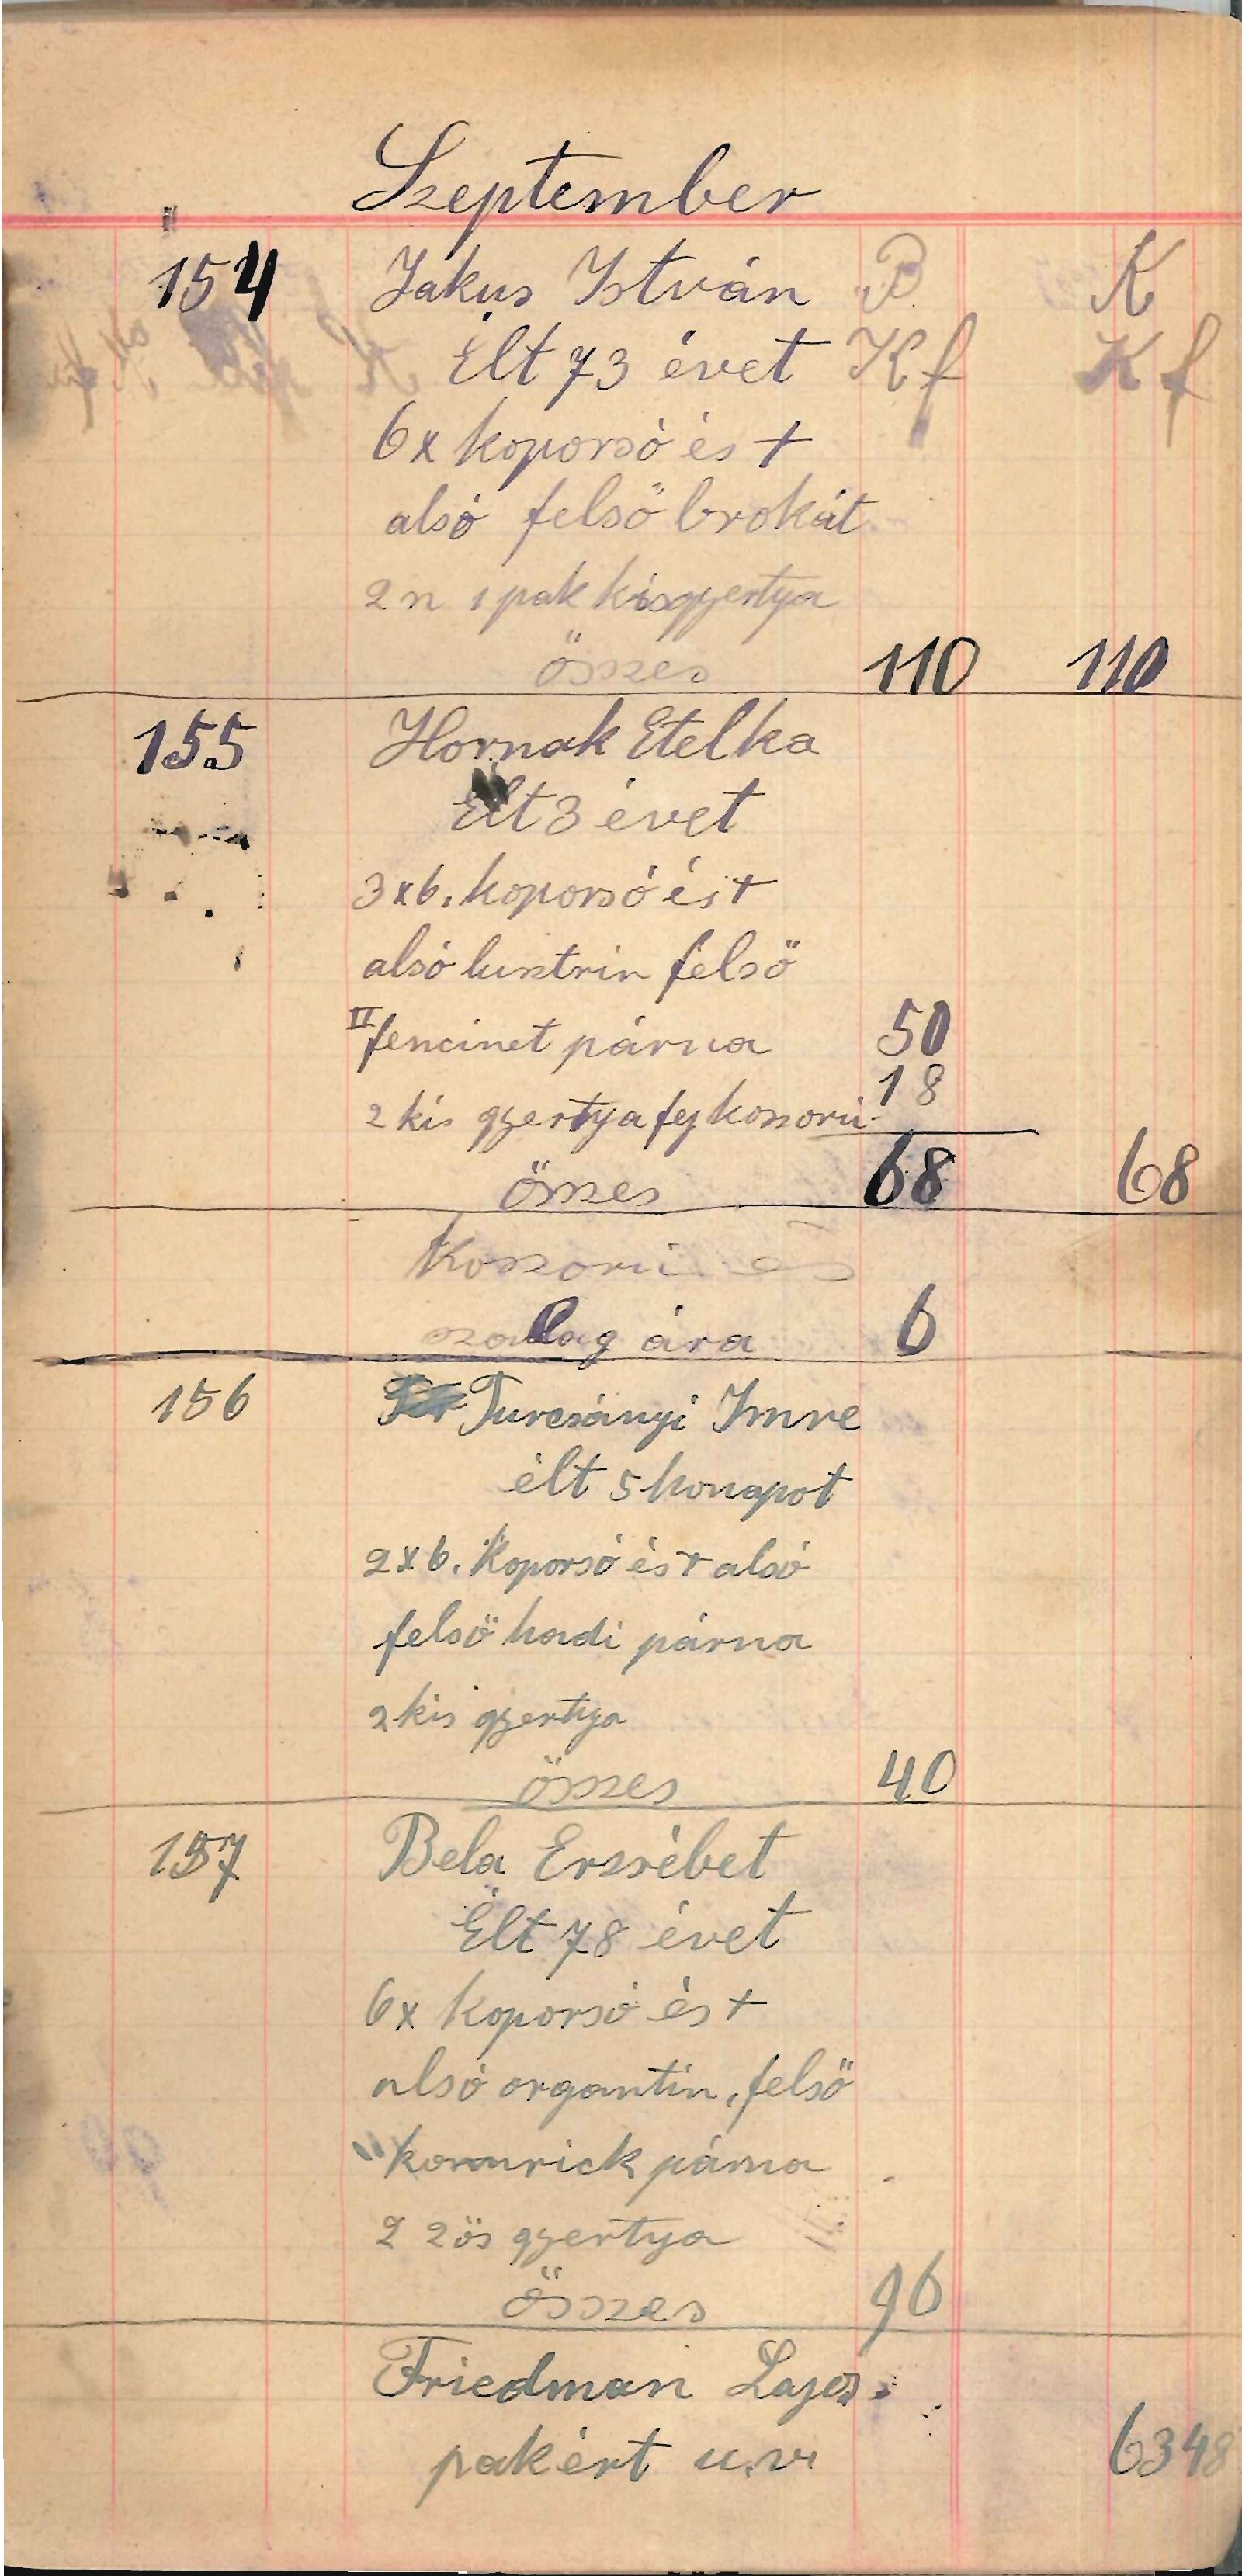 Szeptember
154 Jakus István B K
Élt 73 évet Kf Kf
6x koporsó és +
alsó felső brokát
2 n 1 pak kisgyertya
összes 110 110
155 Hornak Etelka
Élt 3 évet
3x6. koporsó és +
alsó lusztrin felső
II fencinet párna 50
18
2 kis gyertya fej koszorú
összes 68 68
Koszorú és
szalag ára 6
156 Turcsányi Imre
élt 5 honapot
2x6. Koporsó és + alsó
felső hadi párna
2 kis gyertya
összes 40
157 Bela Erzsébet
Élt 78 évet
6x koporsó és +
alsó organtin, felső
" párna
2 2ös gyertya
összes 96
Friedman Lajos
pakért 6348